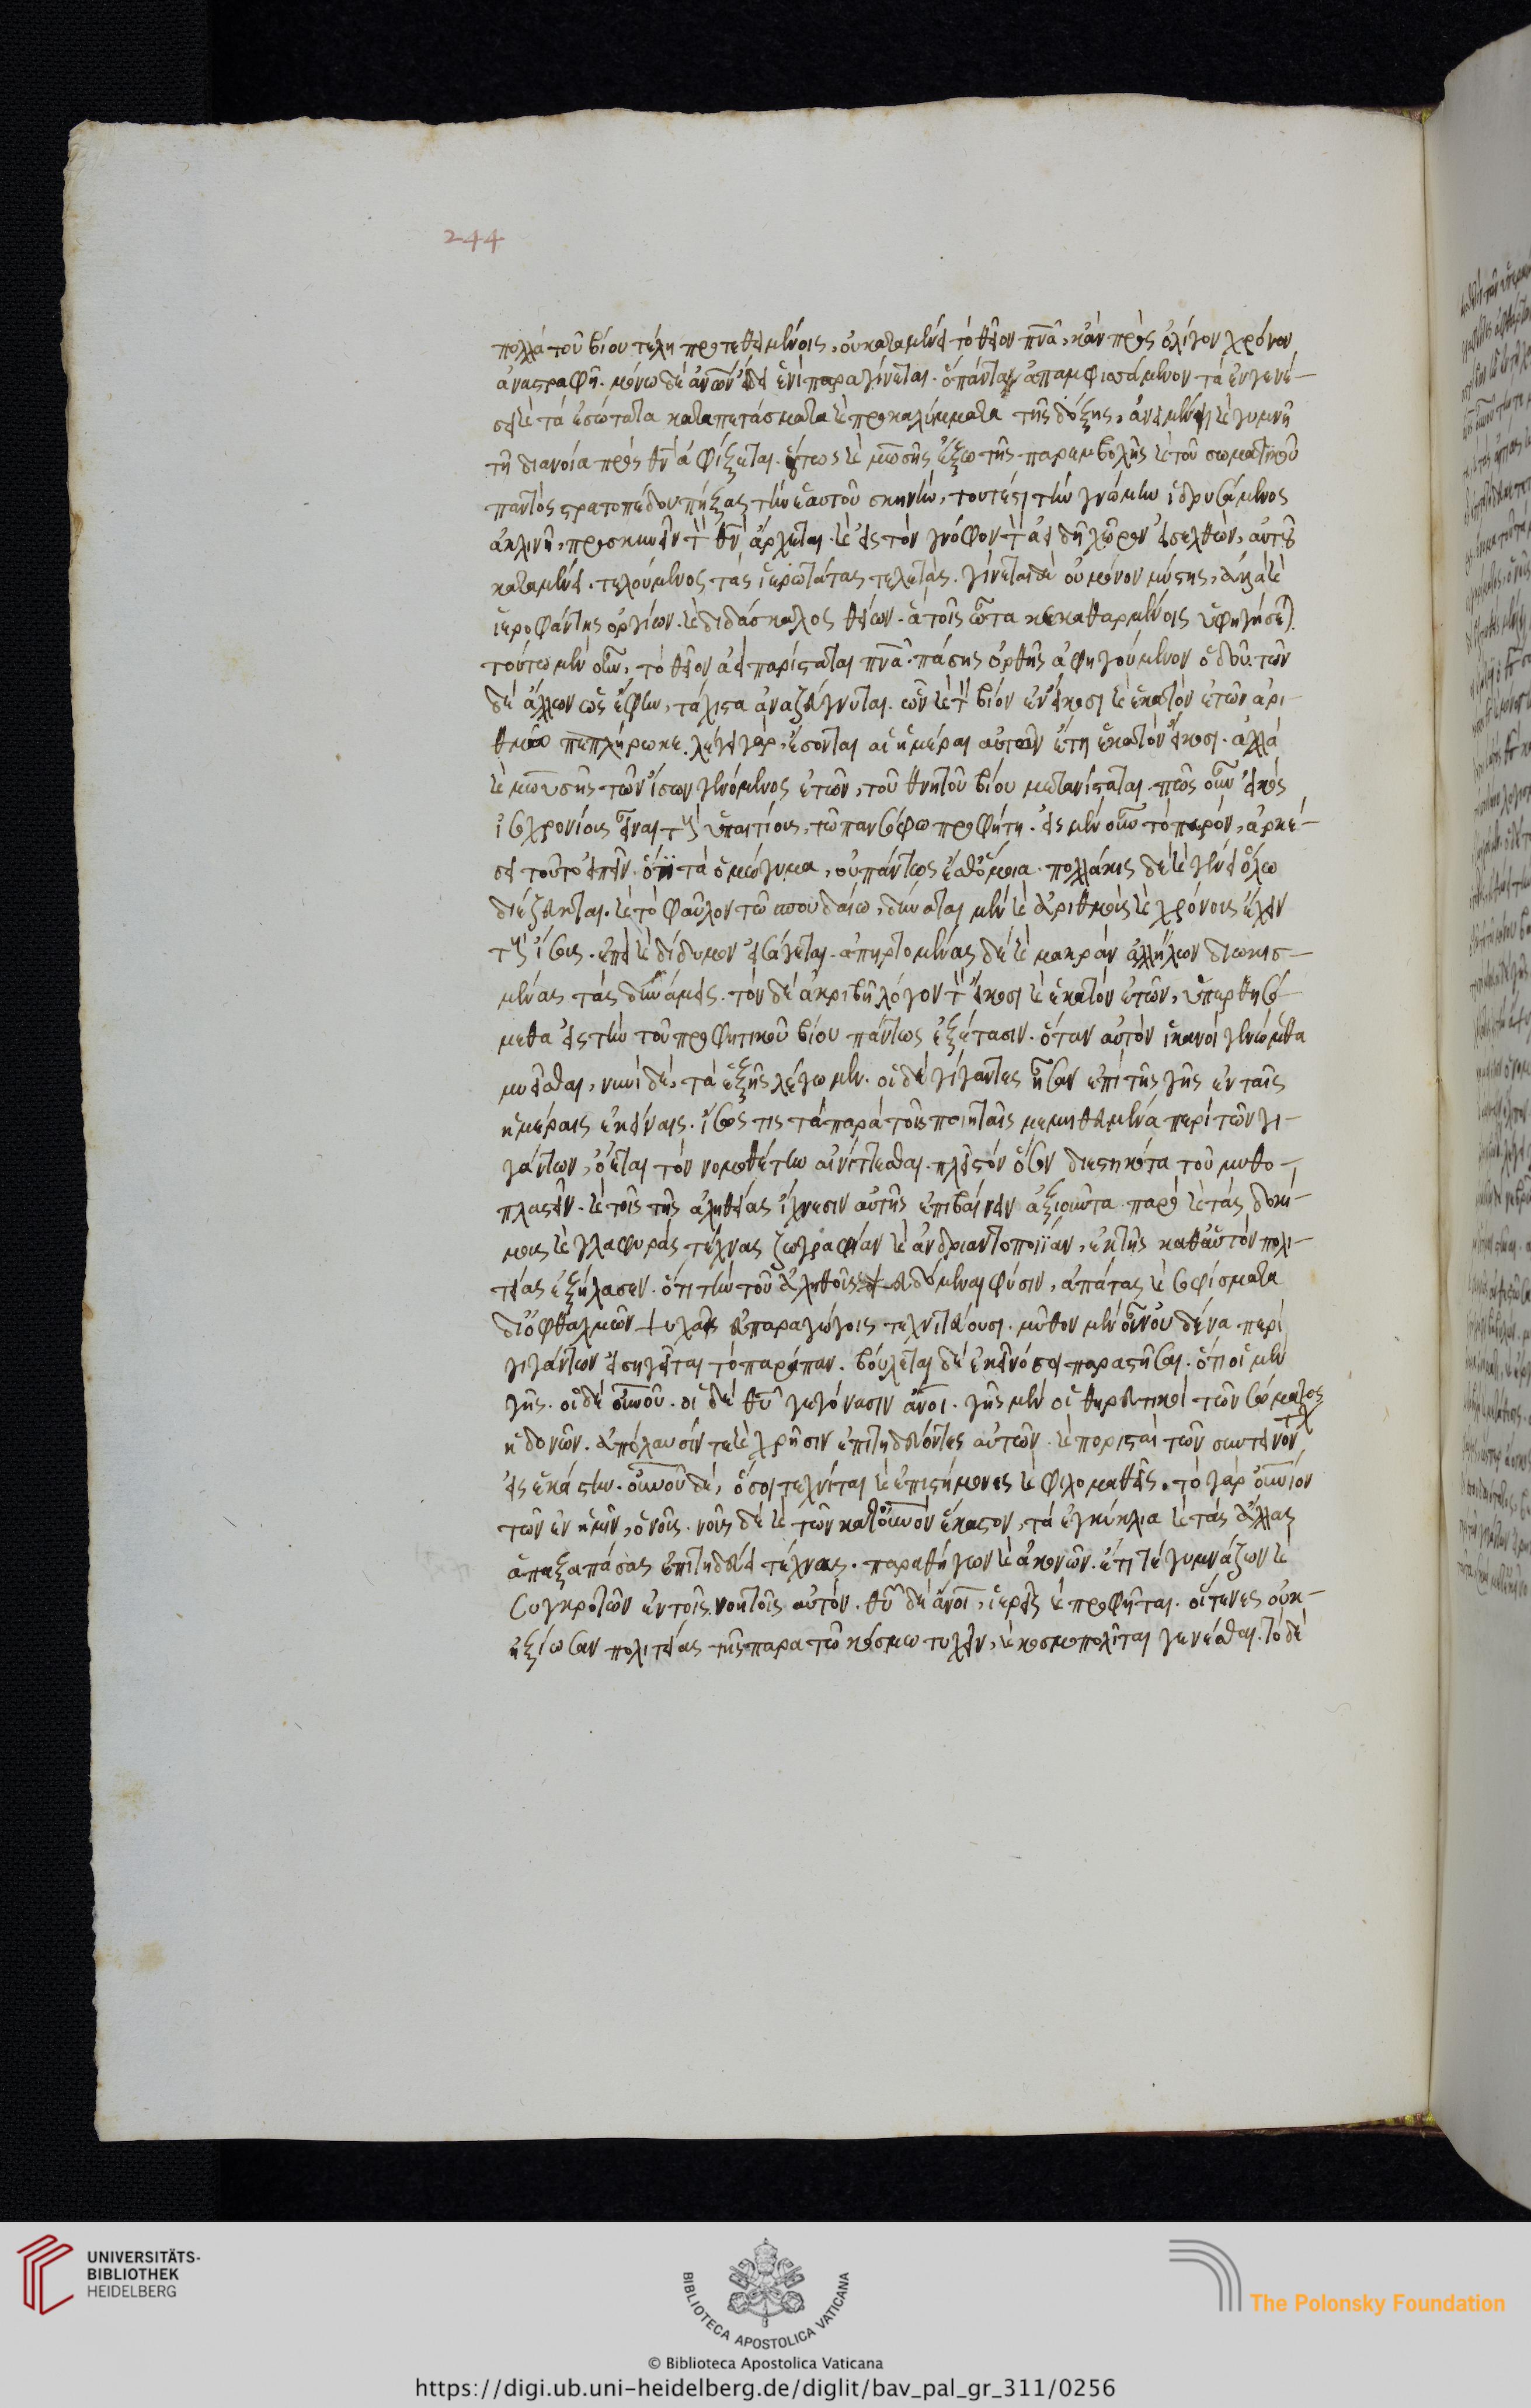 244
πολλὰ τοῦ βίου τέλη προτεθειμένοις, οὐ καταμένει τὸ θεῖον πνᾶ, κἂν πρὸς ὀλίγον χρόνον
ἀναστραφῇ. μόνω δὲ ἀνῶν εἴδει ἑνὶ παραγίνεται. ὃ πάντα ἀπαμφιασάμενον τὰ ἐν γενέ-
σει καὶ τὰ ἐσώτατα καταπετάσματα καὶ προκαλύμματα τῆς δόξης, ἀνειμένη καὶ γυμνῆ
τῆ διανοία πρὸς θν ἀφίξεται. οὕτως καὶ μωσῆς ἔξω τῆς παρεμβολῆς καὶ τοῦ σωματικοῦ
παντὸς στρατοπέδου πήξας τὴν ἑαυτοῦ σκηνὴν, τουτέστι τὴν γνώμην ἱδρυσάμενος
ἀκλινῆ, προσκυνεῖν τὸν θν ἄρχεται. καὶ εἰς τὸν γνόφον τὸν ἀειδῆ χῶρον εἰσελθὼν, αὐτοῦ
καταμένει. τελούμενος τὰς ἱερωτάτας τελετάς. γίνεται δὲ οὐ μόνον μύστης, ἀλλὰ καὶ
ἱεροφάντης ὀργίων. καὶ διδάσκαλος θείων. ἃ τοῖς ὦτα κεκαθαρμένοις ὑφηγήσεται.
τούτω μὲν οὖν, τὸ θεῖον ἀεὶ παρίσταται πνᾶ. πάσης ὀρθῆς ἀφηγούμενον ὁδοῦ. τῶν
δὲ ἄλλων ὡς ἔφην, τάχιστα ἀναζεύγνυται. ὧν καὶ τὸν βίον ἐν εἴκοσι καὶ ἑκατὸν ἐτῶν ἀρι-
θμῶ πεπλήρωκε. λέγει γὰρ, ἔσονται αἱ ἡμέραι αὐτῶν ἔτη ἑκατὸν εἴκοσι. ἀλλὰ
καὶ μωυσῆς τῶν ἴσων γενόμενος ἐτῶν, τοῦ θνητοῦ βίου μετανίσταται. πῶς οὖν εἰκὸς
ἰσοχρονίους εἶναι τοὺς ὑπαιτίους, τῶ πανσόφω προφήτη. εἰς μὲν οὖν τὸ παρὸν, ἀρκέ-
σει τοῦτο εἰπεῖν. ὅτι τὰ ὁμώνυμα, οὐ πάντως ἐσθ' ὅμοια. πολλάκις δὲ καὶ γένει ὅλω
διέζευκται. καὶ τὸ φαῦλον τῶ σπουδαίω, δύναται μὲν καὶ ἀριθμοὺς καὶ χρόνους ἔχειν
τοὺς ἴσους. ἐπεὶ καὶ δίδυμον εἰσάγεται. ἀπηρτομένας δὲ καὶ μακρὰν ἀλλήλων διωκισ-
μένας τὰς δυνάμεις. τὸν δὲ ἀκριβῆ λόγον τῶν εἴκοσι καὶ ἑκατὸν ἐτῶν, ὑπερθησό-
μεθα εἰς τὴν τοῦ προφητικοῦ βίου πάντως ἐξέτασιν. ὅταν αὐτὸν ἱκανοὶ γενώμεθα
μυεῖσθαι, νυνὶ δὲ, τὰ ἑξῆς λέγωμεν. οἱ δὲ γίγαντες ἦσαν ἐπὶ τῆς γῆς ἐν ταῖς
ἡμέραις ἐκείναις. ἴσως τις τὰ παρὰ τοῖς ποιηταῖς μεμυθευμένα περὶ τῶν γι-
γάντων, οἴεται τὸν νομοθέτην αἰνίττεσθαι. πλεῖστον ὅσον διεστηκότα τοῦ μυθο-
πλαστεῖν. καὶ τοῖς τῆς ἀληθείας ἴχνεσιν αὐτῆς ἐπιβαίνειν ἀξιοῦντα. παρὸ καὶ τὰς δοκί-
μους καὶ γλαφυρὰς τέχνας ζωγραφίαν καὶ ἀνδριαντοποιΐαν, ἐκ τῆς καθ' αὐτὸν πολι-
τείας ἐξήλασεν. ὅτι τὴν τοῦ ἀληθοῦς ψευδόμεναι φύσιν, ἀπάτας καὶ σοφίσματα
δι' ὀφθαλμῶν ψυχαῖς εὐπαραγώγοις τεχνιτεύουσι. μῦθον μὲν οὖν οὐδένα περὶ
γιγάντων εἰσηγεῖται τὸ παράπαν. βούλεται δὲ ἐκεῖνό σοι παραστῆσαι. ὅτι οἱ μὲν
γῆς. οἱ δὲ οὐνοῦ. οἱ δὲ θῦ γεγόνασιν ἄνοι. γῆς μὲν οἱ θηρευτικοὶ τῶν σώματος
ἡδονῶν. ἀπόλαυσίν τε καὶ χρῆσιν ἐπιτηδεύοντες αὐτῶν. καὶ πορισταὶ τῶν συντεινόντων
εἰς ἑκάστην. οὐνοῦ δὲ, ὅσοι τεχνῖται καὶ ἐπιστήμονες καὶ φιλομαθεῖς. τὸ γὰρ οὐνιον
τῶν ἐν ἡμῖν, ὁ νοῦς. νοῦς δὲ καὶ τῶν κατ' οὐνὸν ἕκαστον, τὰ ἐγκύκλια καὶ τὰς ἄλλας
ἁπαξαπάσας ἐπιτηδεύει τέχνας. παραθήγων καὶ ἀκονῶν. ἔτι τε γυμνάζων καὶ
συγκροτῶν ἐν τοῖς νοητοῖς αὐτόν. θῦ δὲ ἄνοι, ἱερεῖς καὶ προφῆται. οἵτινες οὐκ-
ἠξίωσαν πολιτείας τῆς παρὰ τῶ κόσμω τυχεῖν, καὶ κοσμοπολῖται γενέσθαι. τὸ δὲ
UNIVERSITÄTS-
BIBLIOTHEK
HEIDELBERG
BIBLIOTECA APOSTOLICA VATICANA
The Polonsky Foundation
© Biblioteca Apostolica Vaticana
https://digi.ub.uni-heidelberg.de/diglit/bav_pal_gr_311/0256